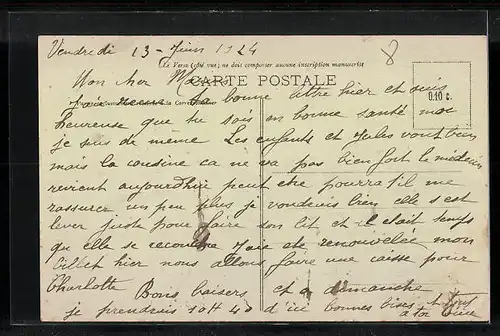 Vendredi 13 Juin 1924
8
Le Verso (côté vue) ne doit comporter aucune inscription manuscrite
Mon cher
CARTE POSTALE
J'ai bonne lettre hier et suis
0.10 c.
heureuse que tu sois en bonne santé moi
je suis de même. Les enfants et Jules vont bien
mais la cousine ca ne va pas bien fort le médecin
revient aujourd'hui peut etre pourra t'il me
rassurer un peu plus je voudrais bien elle s'est
lever juste pour faire son lit et il était temps
qu elle se recouche J'ai été renouvelée mon
billet hier nous allons faire une caisse pour
Charlotte Bons baisers et a dimanche
je prendrais 10H40 d'ici bonnes bises